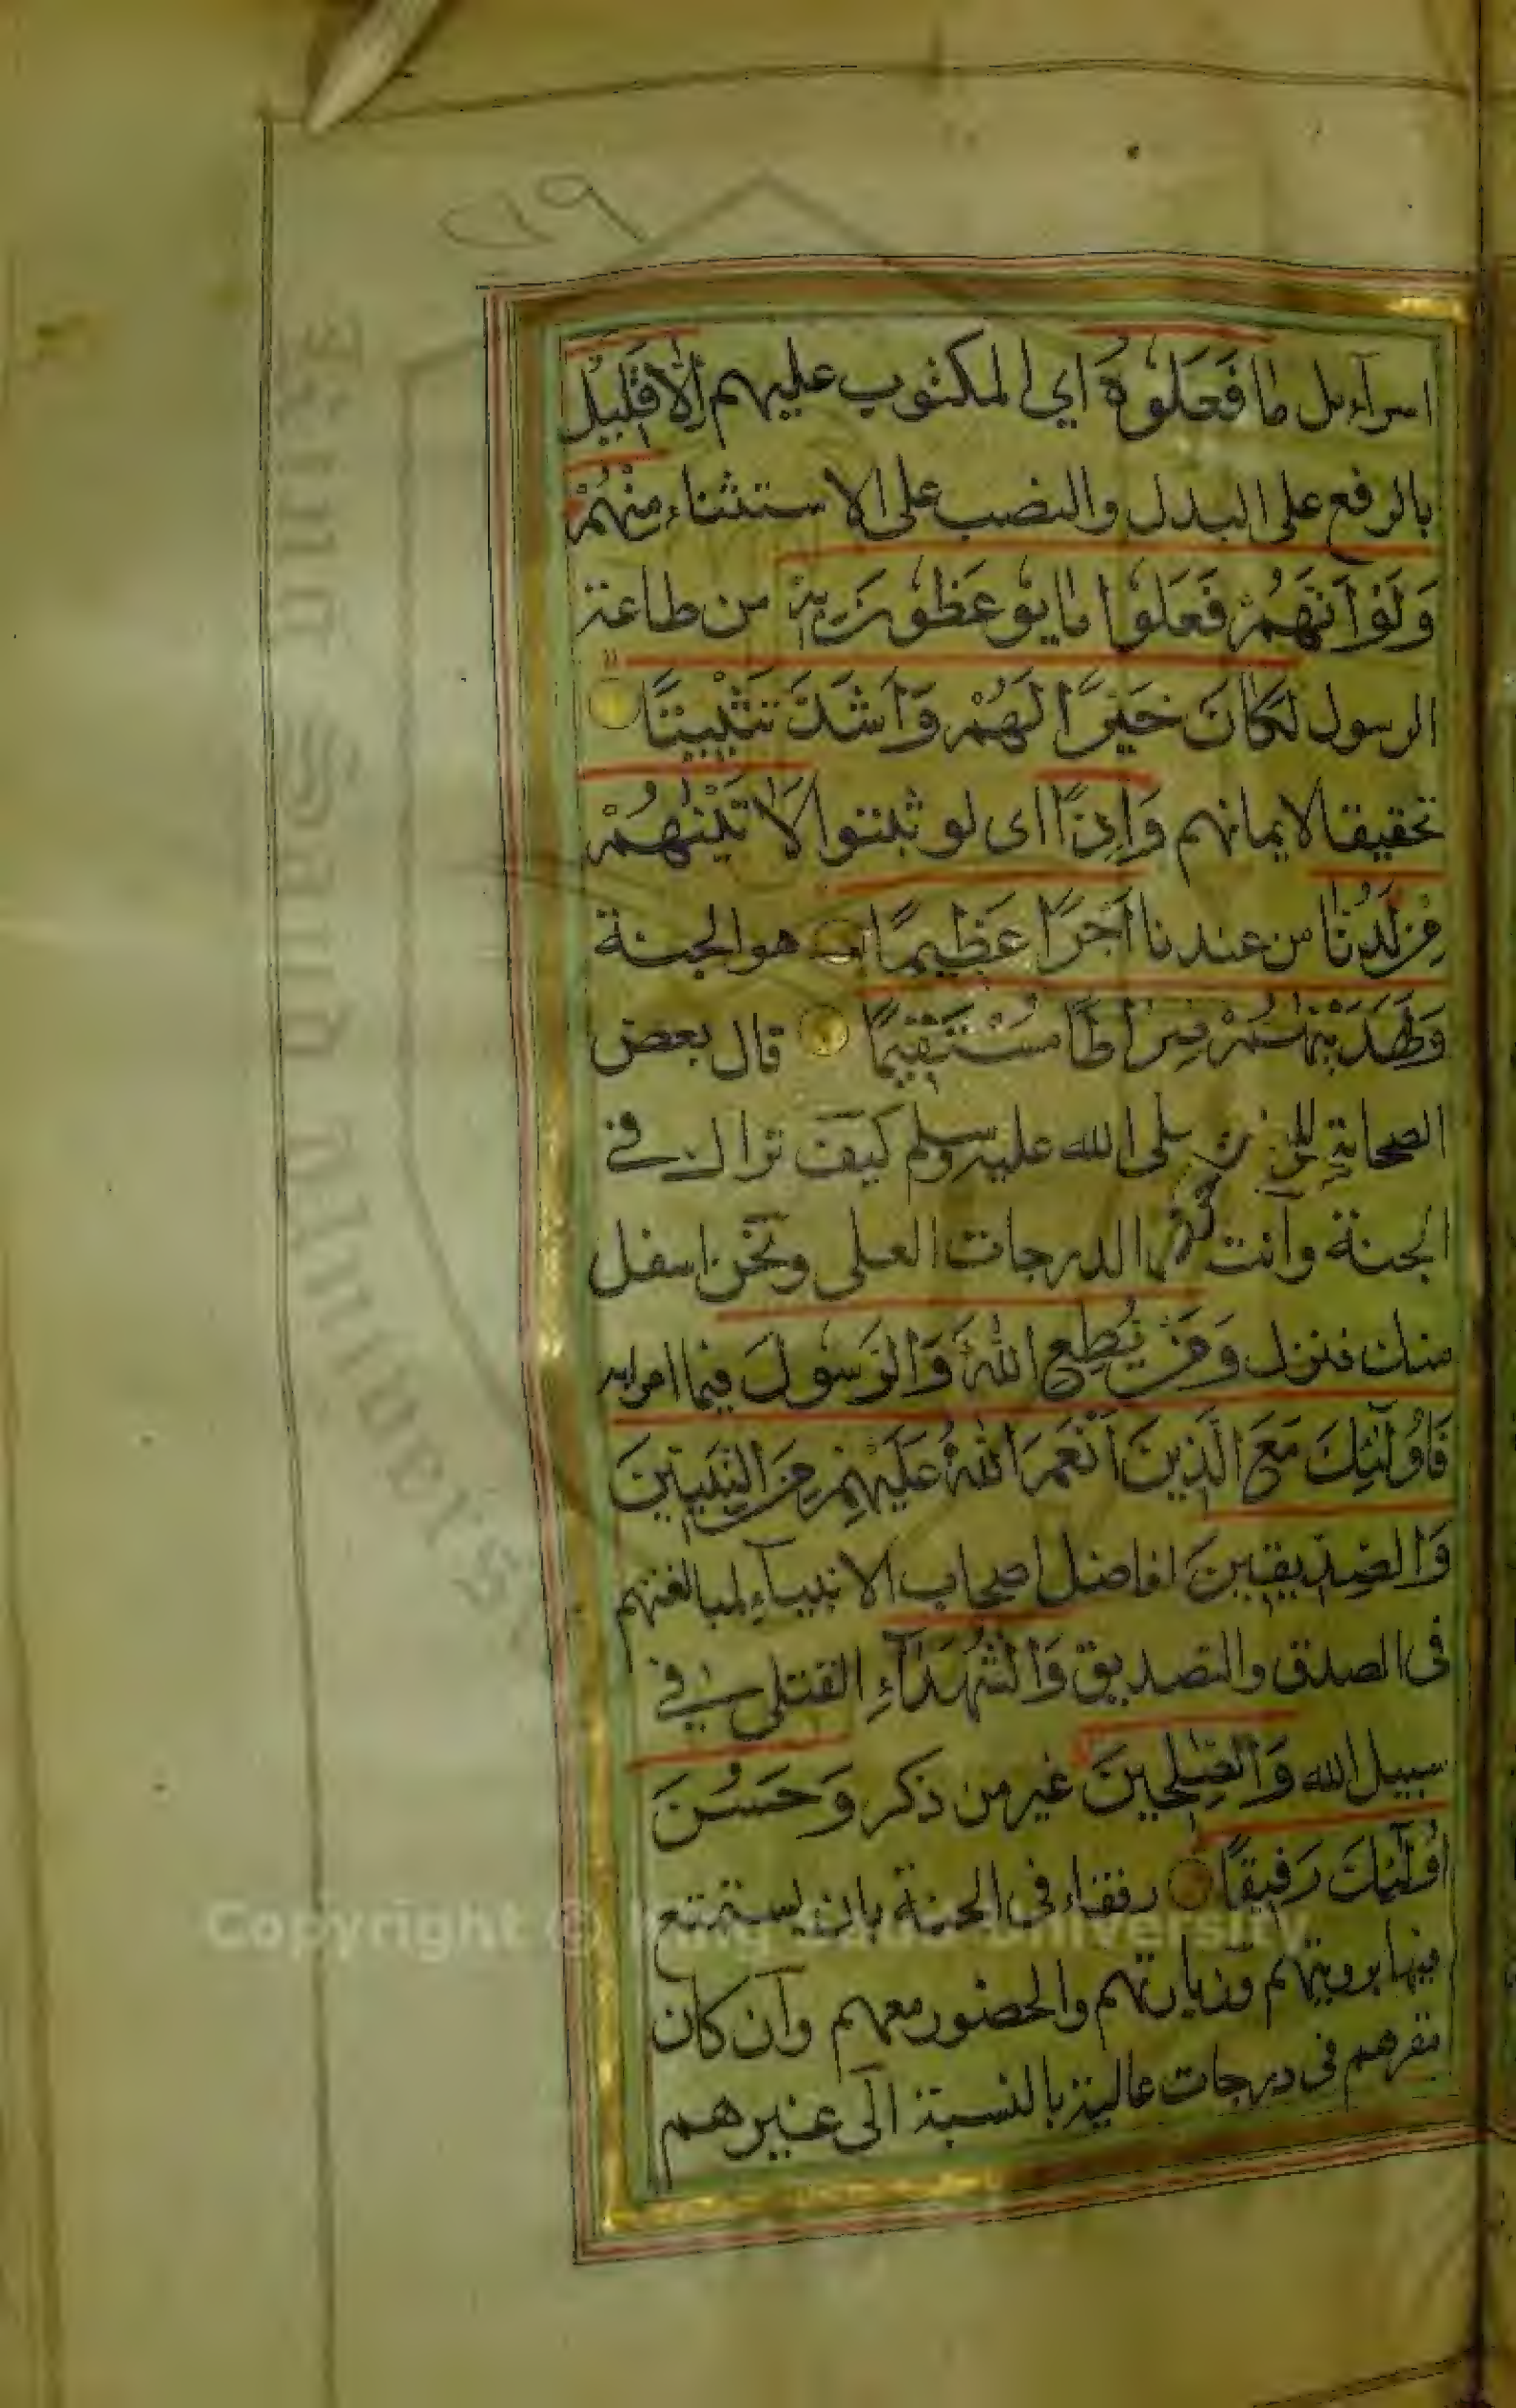 اسرآءيل مَا فَعَلُوْهُ اي المكتوب عليهم اِلَّا قَلِيْلٌ
بالرفع على البدل والنصب على الاستثناء مِنْهُمْ
وَلَوْ اَنَّهُمْ فَعَلُوْا مَا يُوْعَظُوْنَ بِهٖ من طاعة
الرسول لَكَانَ خَيْرًا لَهُمْ وَاَشَدَّ تَثْبِيْتًا
تحقيقا لايمانهم وَاِذًا اى لو ثبتوا لَاٰتَيْنٰهُمْ
مِنْ لَدُنَّا من عندنا اَجْرًا عَظِيمًا هو الجنة
وَلَهَدَيْنٰهُمْ صِرَاطًا مُسْتَقِيْمًا قال بعض
الصحابة للنبى صلى الله عليه وسلم كيف نراك في
الجنة وانت فى الدرجات العلى ونحن اسفل
منك فنزل وَمَنْ يُطِعِ اللّٰهَ وَالرَّسُوْلَ فيما امرا به
فَاُولٰٓئِكَ مَعَ الَّذِيْنَ اَنْعَمَ اللّٰهُ عَلَيْهِمْ مِنَ النَّبِيّٖنَ
وَالصِّدِّيقِيْنَ افاضل اصحاب الانبيآء لمبالغتهم
فى الصدق والتصديق وَالشُّهَدَآءِ القتلى في
سبيل الله وَالصّٰلِحِيْنَ غير من ذكر وَحَسُنَ
اُولٰٓئِكَ رَفِيْقًا رفقاء فى الجنة بان يستمتع
فيها برويتهم وزيارتهم والحضور معهم وان كان
مقرهم فى درجات عالية بالنسبة الى غيرهم
Copyright © King Saud University
King Saud University